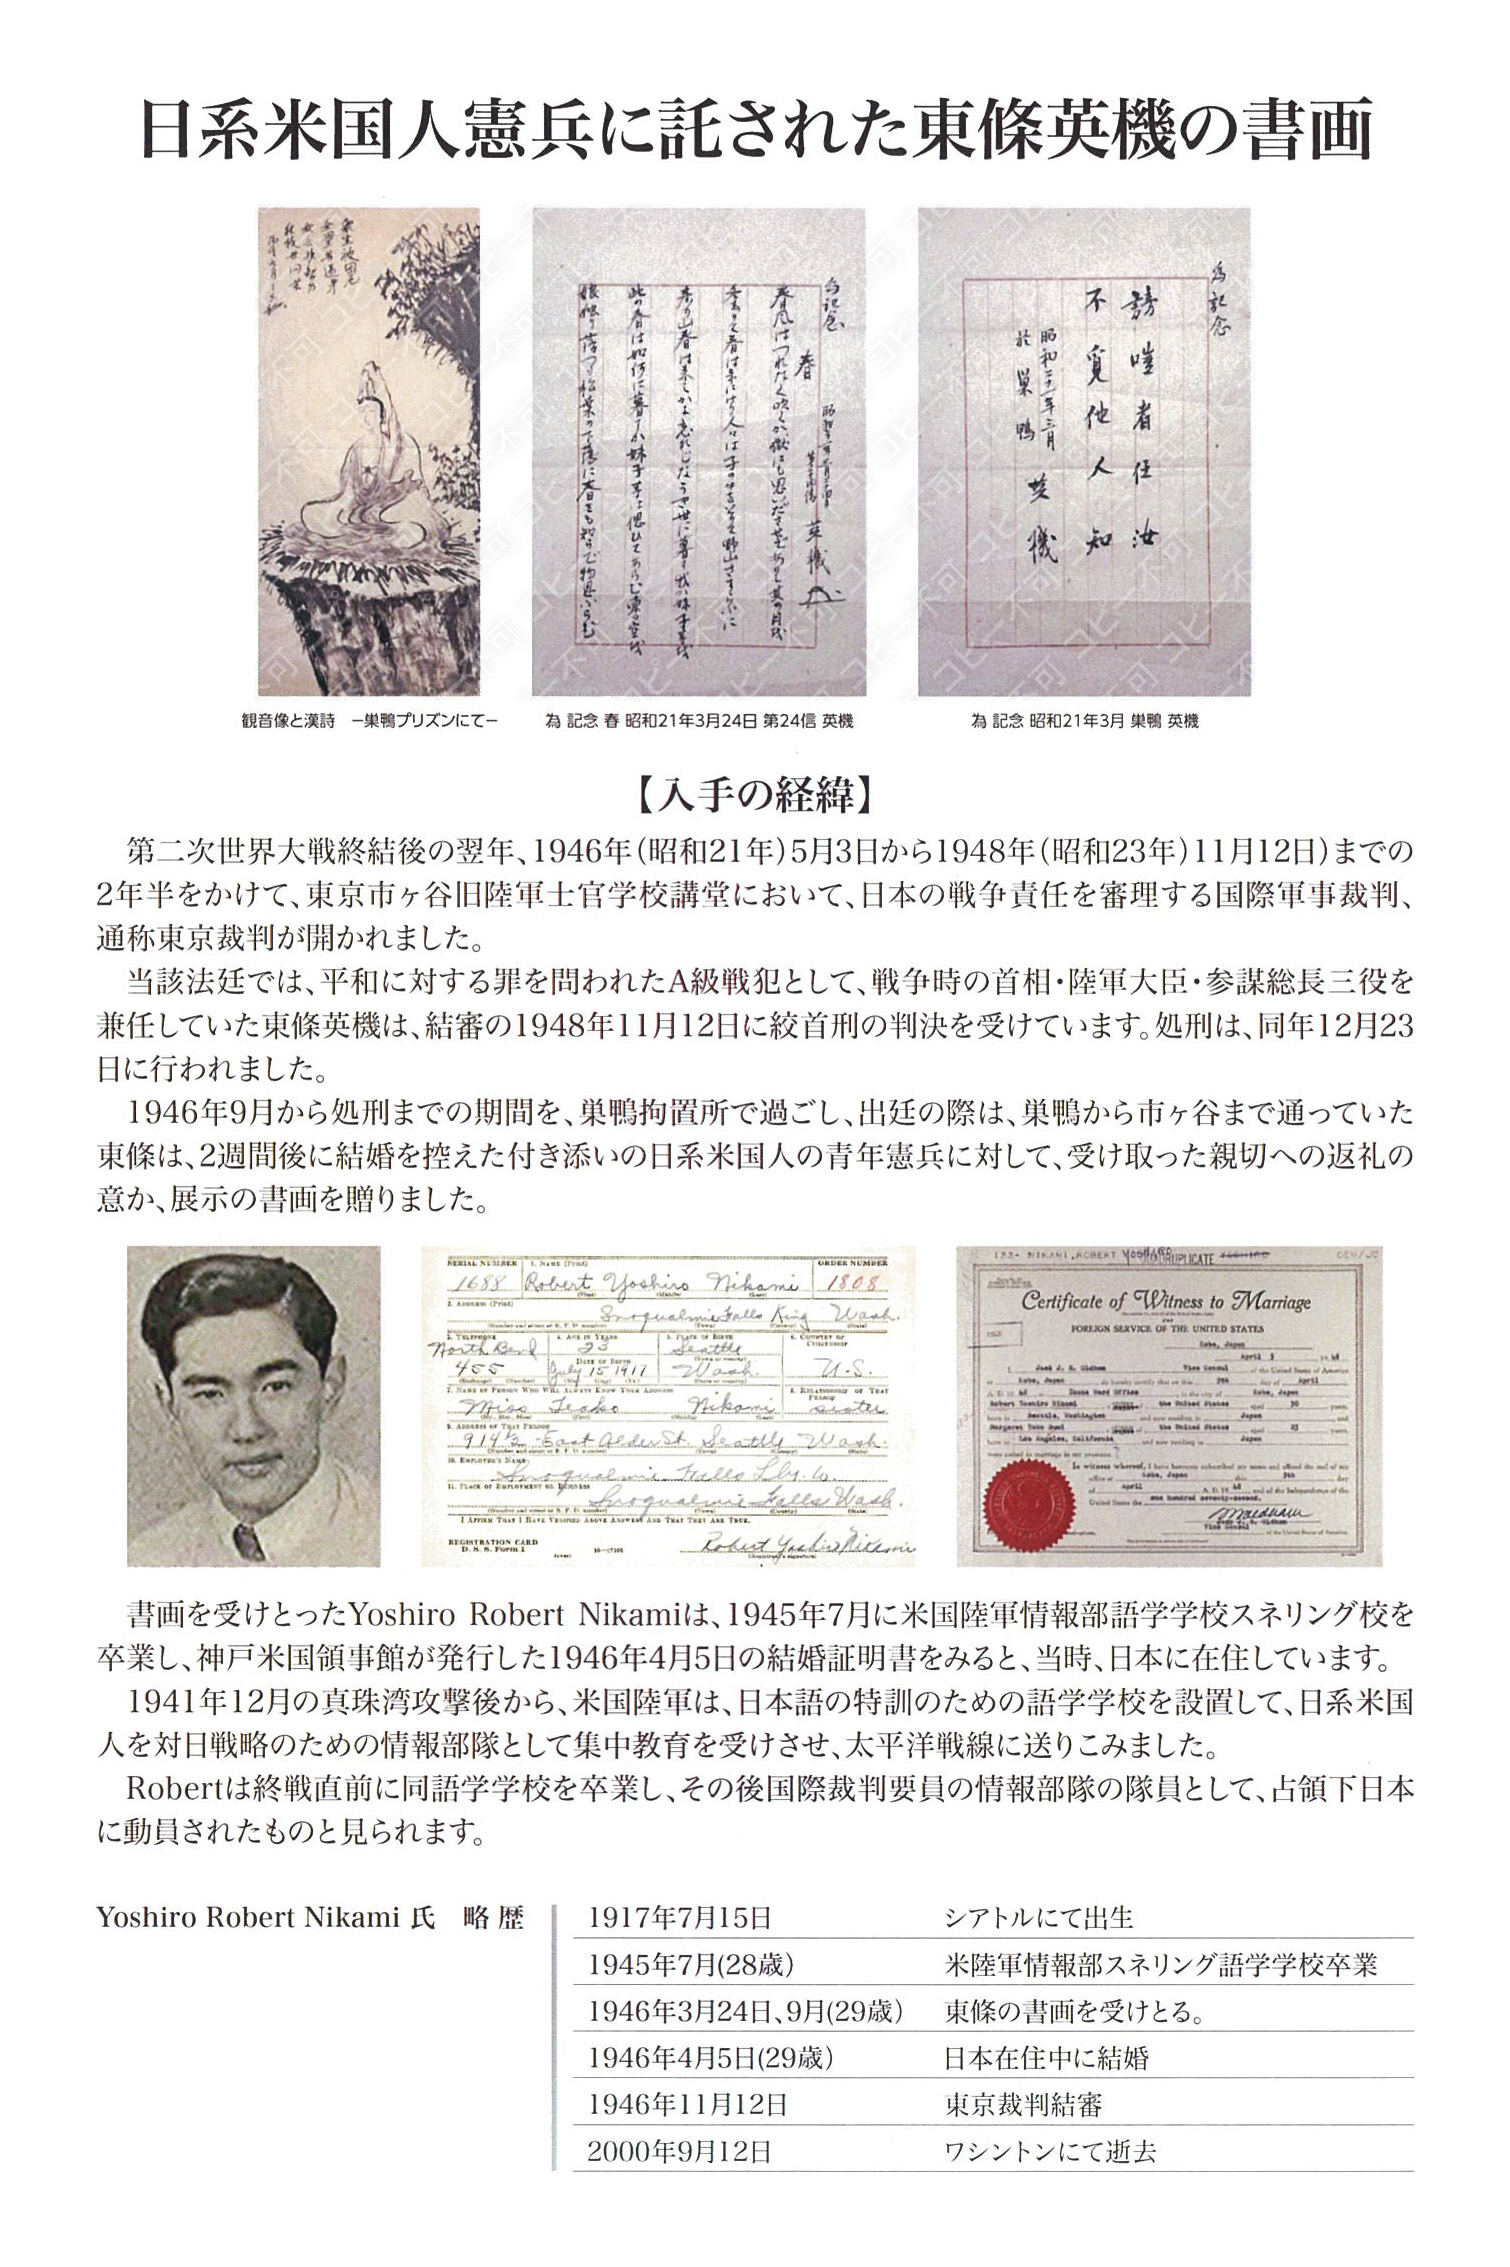 日系米国人憲兵に託された東條英機の書画
為記念
春
英機
為記念
謗嗤者任汝
不覓他人知
昭和二十一年三月
於巣鴨
英機
コピー不可
観音像と漢詩　−巣鴨プリズンにて−
為 記念 春 昭和21年3月24日 第24信 英機
為 記念 昭和21年3月 巣鴨 英機
【入手の経緯】
第二次世界大戦終結後の翌年、1946年（昭和21年）5月3日から1948年（昭和23年）11月12日）までの
2年半をかけて、東京市ヶ谷旧陸軍士官学校講堂において、日本の戦争責任を審理する国際軍事裁判、
通称東京裁判が開かれました。
当該法廷では、平和に対する罪を問われたA級戦犯として、戦争時の首相・陸軍大臣・参謀総長三役を
兼任していた東條英機は、結審の1948年11月12日に絞首刑の判決を受けています。処刑は、同年12月23
日に行われました。
1946年9月から処刑までの期間を、巣鴨拘置所で過ごし、出廷の際は、巣鴨から市ヶ谷まで通っていた
東條は、2週間後に結婚を控えた付き添いの日系米国人の青年憲兵に対して、受け取った親切への返礼の
意か、展示の書画を贈りました。
SERIAL NUMBER 1. NAME (Print) ORDER NUMBER
1688 Robert Yoshiro Nikami 1808
2. ADDRESS (Print)
Snoqualmie Falls King Wash.
3. TELEPHONE 4. AGE IN YEARS 5. PLACE OF BIRTH 6. COUNTRY OF CITIZENSHIP
North Bend 23 Seattle
DATE OF BIRTH
455 July 15 1917 Wash. U.S.
7. NAME OF PERSON WHO WILL ALWAYS KNOW YOUR ADDRESS 8. RELATIONSHIP OF THAT PERSON
Miss Nikami sister
9. ADDRESS OF THAT PERSON
914½ East Alder St. Seattle Wash.
10. EMPLOYER'S NAME
Snoqualmie Falls Lbr. Co.
11. PLACE OF EMPLOYMENT OR BUSINESS
Snoqualmie Falls Wash.
I AFFIRM THAT I HAVE VERIFIED ABOVE ANSWERS AND THAT THEY ARE TRUE.
REGISTRATION CARD
D. S. S. Form 1
Robert Yoshiro Nikami
133- NIKAMI, ROBERT YOSHIRO
QUADRUPLICATE
Certificate of Witness to Marriage
FOREIGN SERVICE OF THE UNITED STATES
Kobe, Japan
April 5
Vice Consul
Kobe, Japan
Robert Yoshiro Nikami the United States 30
Seattle, Washington Japan
the United States
Los Angeles, California Japan
Kobe, Japan 5th
April
one hundred seventy-second.
Vice Consul
書画を受けとったYoshiro Robert Nikamiは、1945年7月に米国陸軍情報部語学学校スネリング校を
卒業し、神戸米国領事館が発行した1946年4月5日の結婚証明書をみると、当時、日本に在住しています。
1941年12月の真珠湾攻撃後から、米国陸軍は、日本語の特訓のための語学学校を設置して、日系米国
人を対日戦略のための情報部隊として集中教育を受けさせ、太平洋戦線に送りこみました。
Robertは終戦直前に同語学学校を卒業し、その後国際裁判要員の情報部隊の隊員として、占領下日本
に動員されたものと見られます。
Yoshiro Robert Nikami 氏　略 歴
1917年7月15日 シアトルにて出生
1945年7月(28歳） 米陸軍情報部スネリング語学学校卒業
1946年3月24日、9月(29歳） 東條の書画を受けとる。
1946年4月5日(29歳） 日本在住中に結婚
1946年11月12日 東京裁判結審
2000年9月12日 ワシントンにて逝去